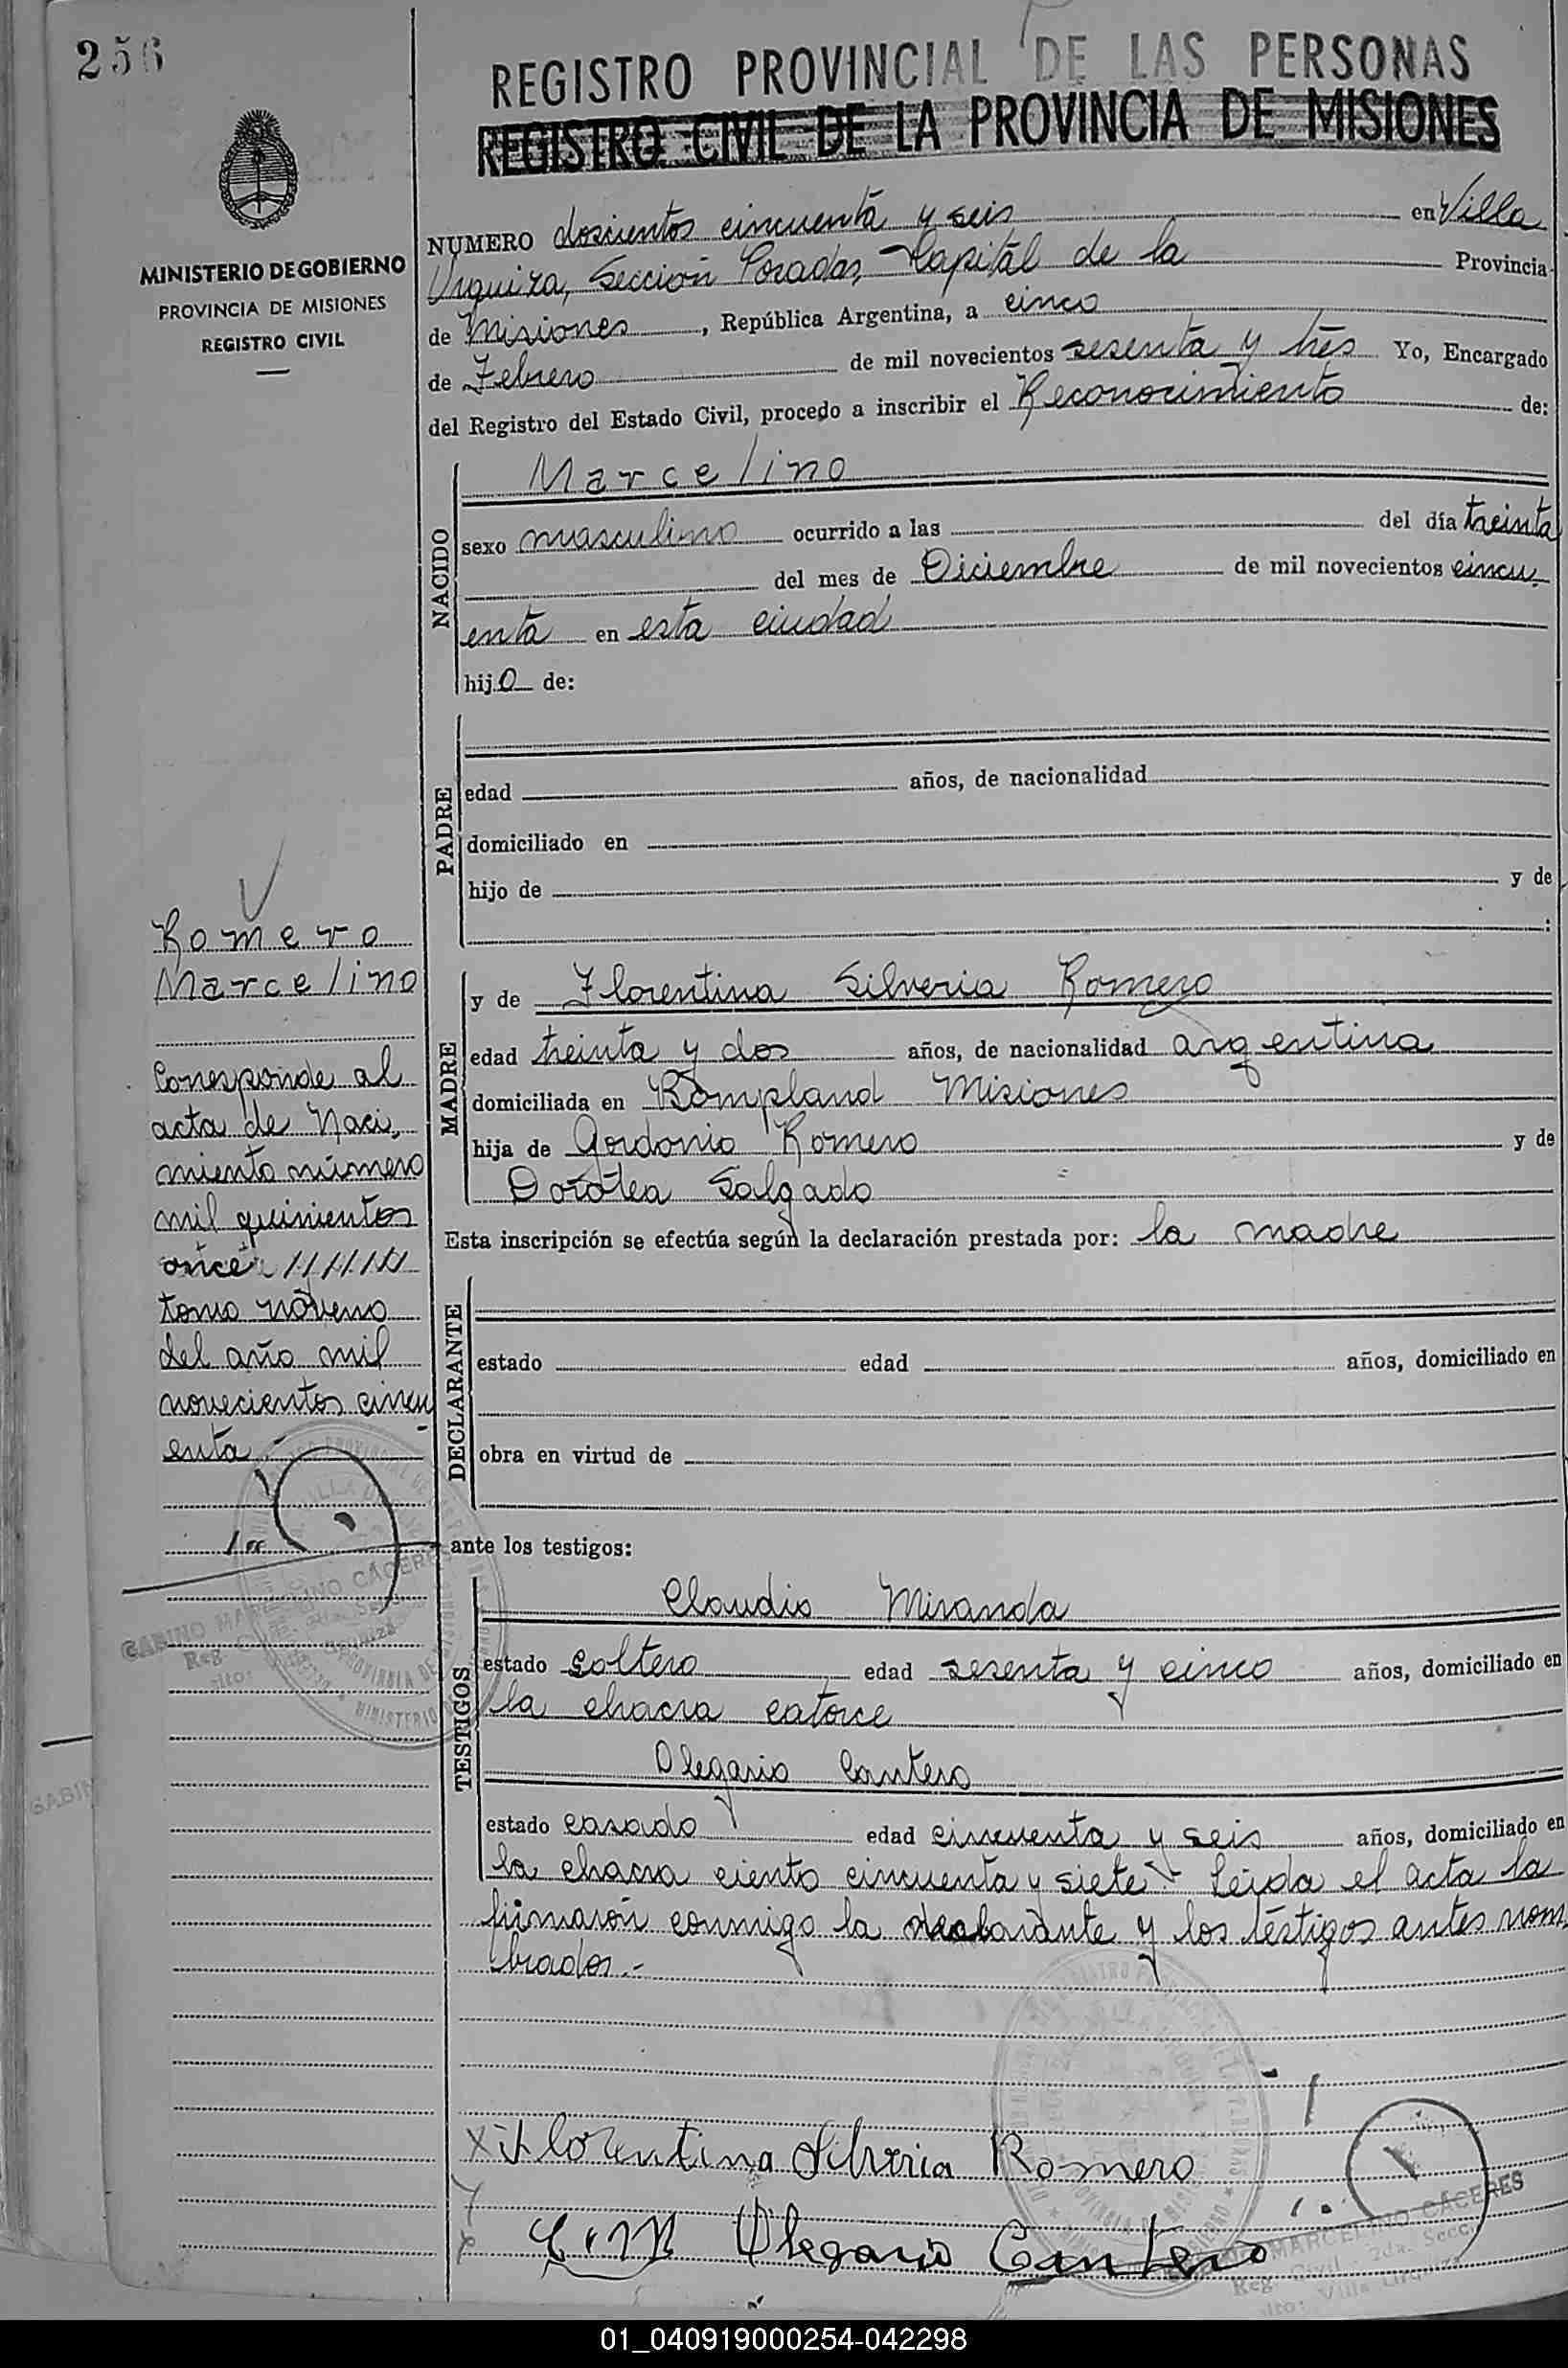 256
REGISTRO PROVINCIAL DE LAS PERSONAS
REGISTRO CIVIL DE LA PROVINCIA DE MISIONES
MINISTERIO DE GOBIERNO
PROVINCIA DE MISIONES
REGISTRO CIVIL
NUMERO doscientos cincuenta y seis en Villa
Urquiza, Sección Posadas, Capital de la Provincia
de Misiones, República Argentina, a cinco
de Febrero de mil novecientos sesenta y tres Yo, Encargado
del Registro del Estado Civil, procedo a inscribir el Reconocimiento de:
NACIDO
Marcelino
sexo masculino ocurrido a las del día treinta
del mes de Diciembre de mil novecientos cincu-
enta en esta ciudad
hijo de:
PADRE
edad años, de nacionalidad
domiciliado en
hijo de y de
:
Romero
Marcelino
Corresponde al
acta de Naci-
miento número
mil quinientos
once
tomo noveno
del año mil
novecientos cincu
enta.-
MADRE
y de Florentina Silveria Romero
edad treinta y dos años, de nacionalidad argentina
domiciliada en Bompland Misiones
hija de Gordonio Romero y de
Dorotea Salgado
Esta inscripción se efectúa según la declaración prestada por: la madre
DECLARANTE
estado edad años, domiciliado en
obra en virtud de
ante los testigos:
TESTIGOS
Claudio Miranda
estado soltero edad sesenta y cinco años, domiciliado en
la chacra catorce
Olegario Cantero
estado casado edad cincuenta y seis años, domiciliado en
la chacra ciento cincuenta y siete.- Leída el acta la
firmaron conmigo la declarante y los testigos antes nom-
brados.-
GABINO MARCELINO CÁCERES
Florentina Silveria Romero
C. M. Olegario Cantero
MARCELINO CÁCERES
Reg. Civil 2da. Secc.
Villa Urquiza
01_040919000254-042298